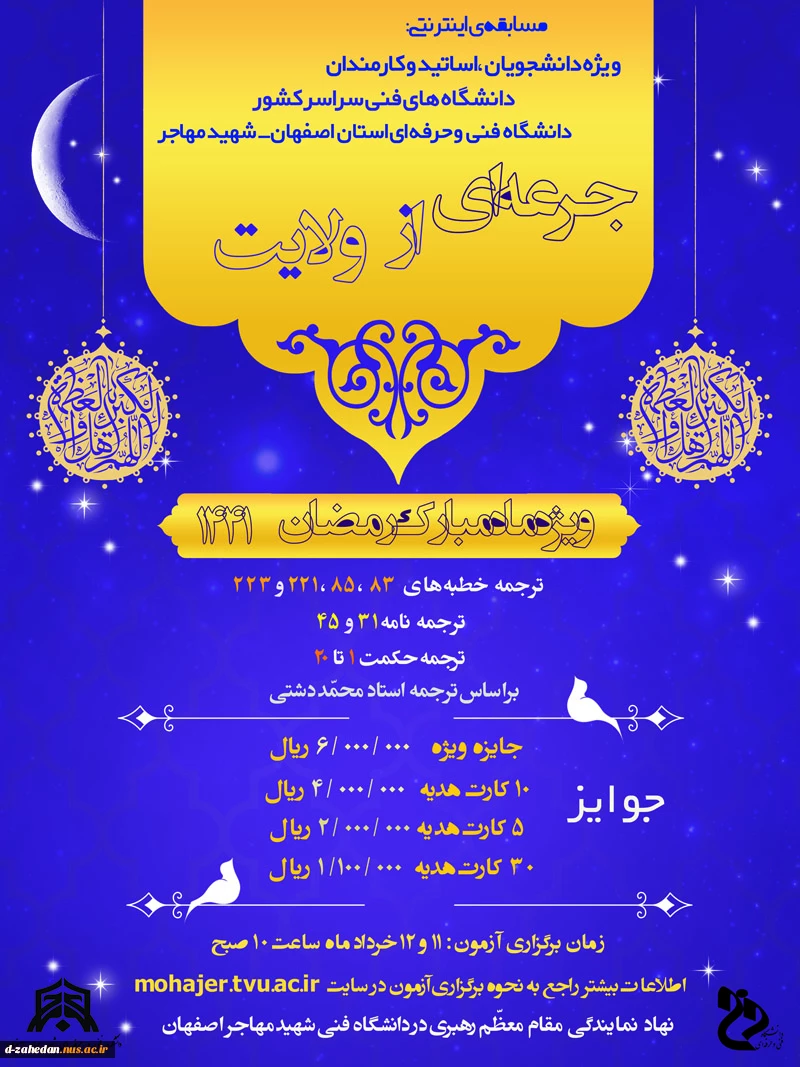 مسابقه‌ی اینترنتی:
ویژه دانشجویان ،اساتید و کارمندان
دانشگاه های فنی سراسر کشور
دانشگاه فنی وحرفه ای استان اصفهان_ شهید مهاجر
جرعه‌ای از ولایت
ویژه ماه مبارک رمضان ۱۴۴۱
ترجمه خطبه های ۸۳ ،۸۵ ،۲۲۱ و ۲۲۳
ترجمه نامه ۳۱ و ۴۵
ترجمه حکمت ۱ تا ۲۰
براساس ترجمه استاد محمّد دشتی
جوایز
جایزه ویژه ۶/۰۰۰/۰۰۰ ریال
۱۰ کارت هدیه ۴/۰۰۰/۰۰۰ ریال
۵ کارت هدیه ۲/۰۰۰/۰۰۰ ریال
۳۰ کارت هدیه ۱/۱۰۰/۰۰۰ ریال
زمان برگزاری آزمون: ۱۱ و ۱۲ خرداد ماه ساعت ۱۰ صبح
اطلاعات بیشتر راجع به نحوه برگزاری آزمون در سایت mohajer.tvu.ac.ir
نهاد نمایندگی مقام معظّم رهبری در دانشگاه فنی شهید مهاجر اصفهان
d-zahedan.nus.ac.ir